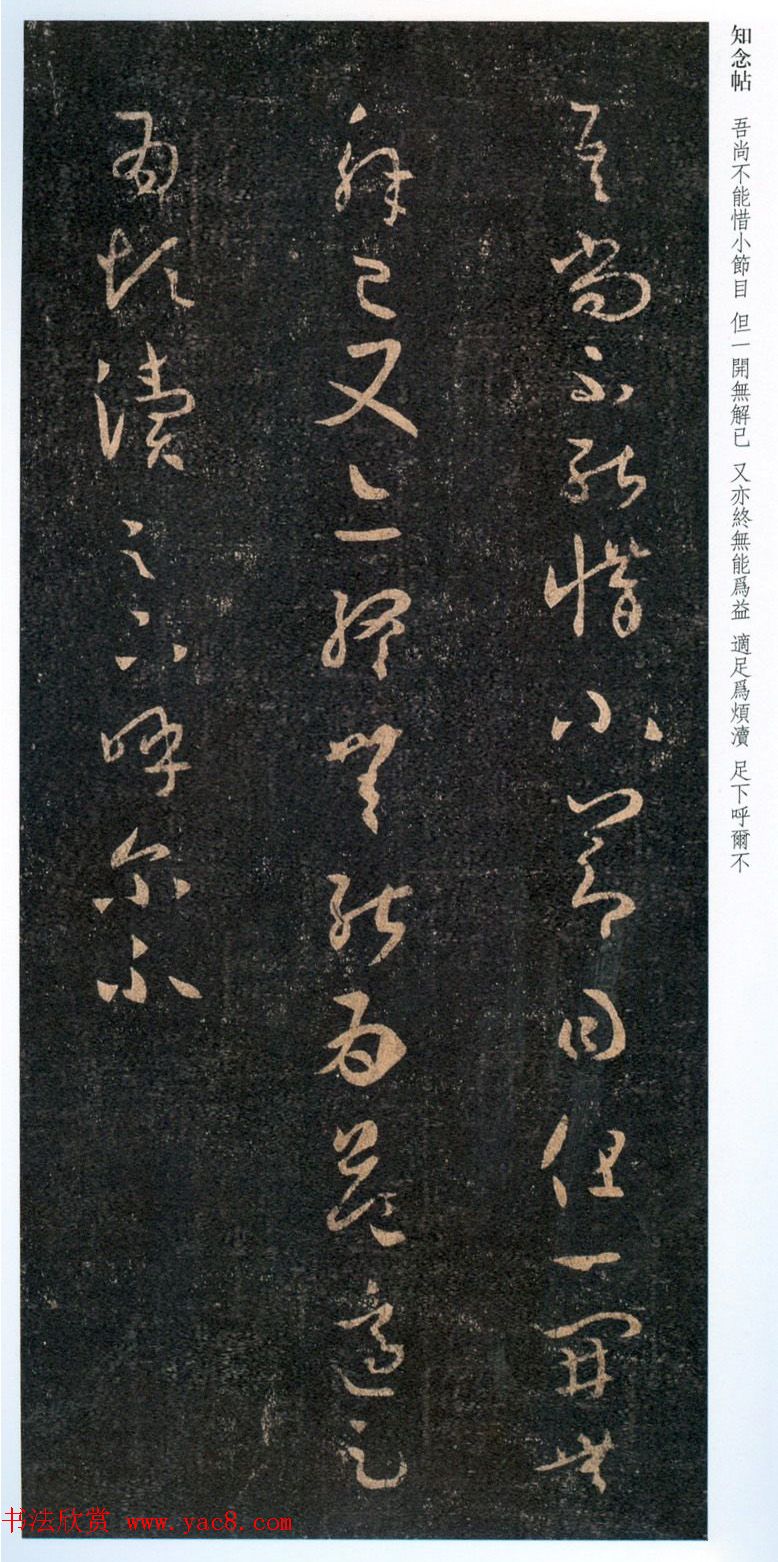 知念帖 吾尚不能惜小節目 但一開無解已 又亦終無能爲益 適足爲煩瀆 足下呼爾不
吾尚不能惜小節目但一開無
解已又亦終無能为益適足
为煩瀆足下呼尔不
书法欣赏 www.yac8.com